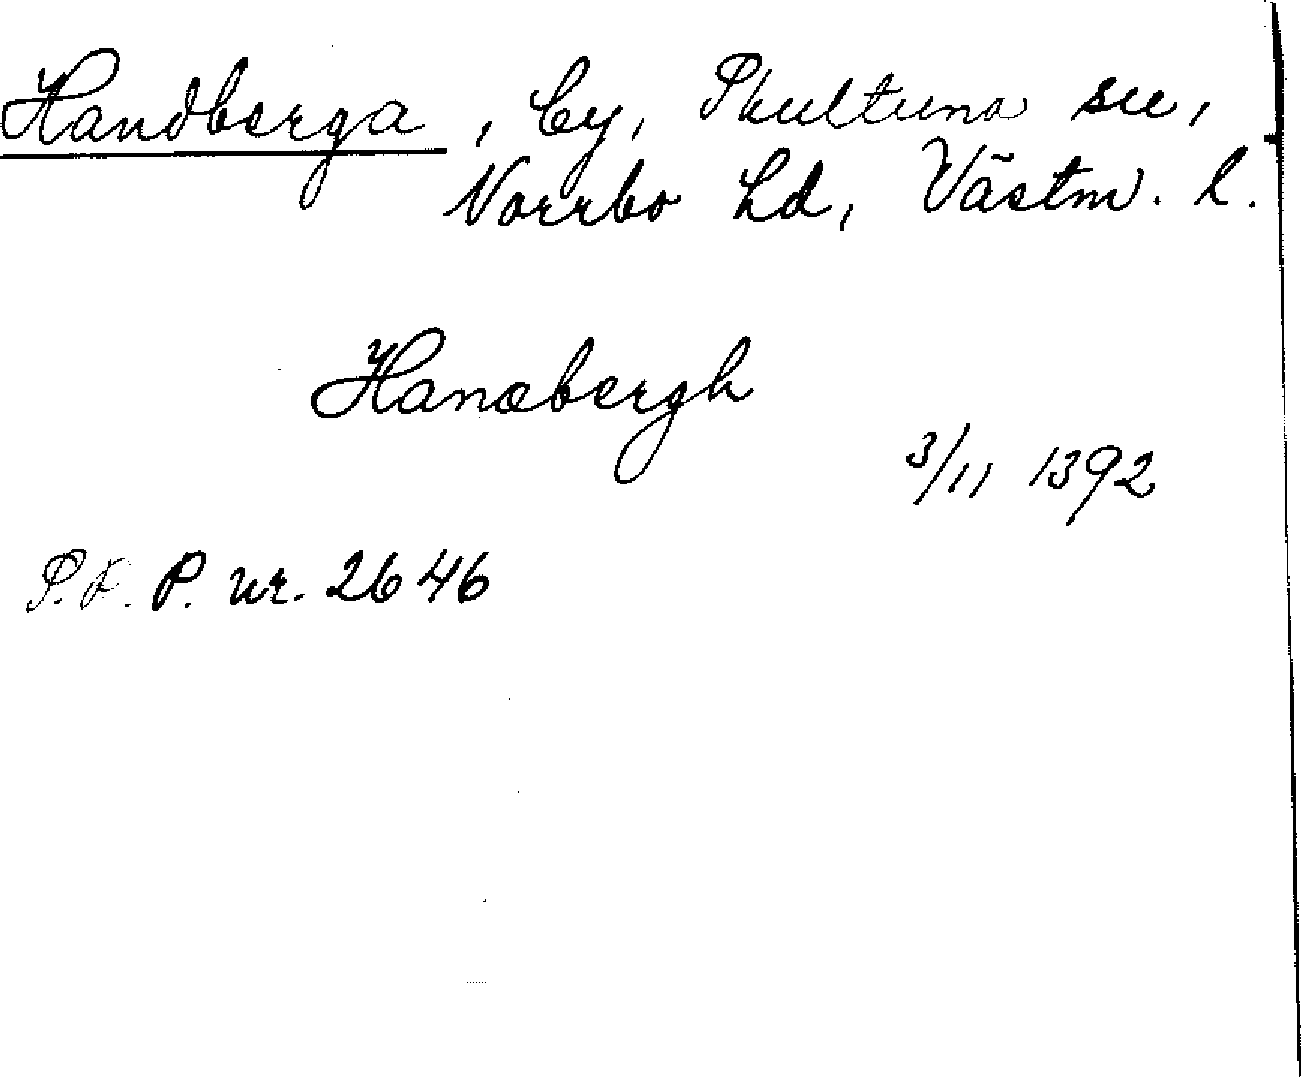 Handberga, by, Skultuna sn,
Norrbo hd, Västm. l.
Hanæbergh
3/11 1392
S.R.P. nr. 2646